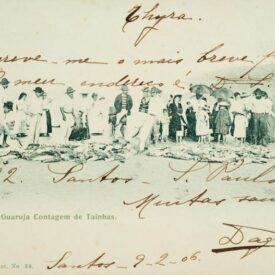 Thyra.
screve-me o mais breve p
O meu endereço é
2. Santos - S. Paul
Muitas sau
Guaruja Contagem de Tainhas.
Dag
No 38.
Santos - 9-2-06.